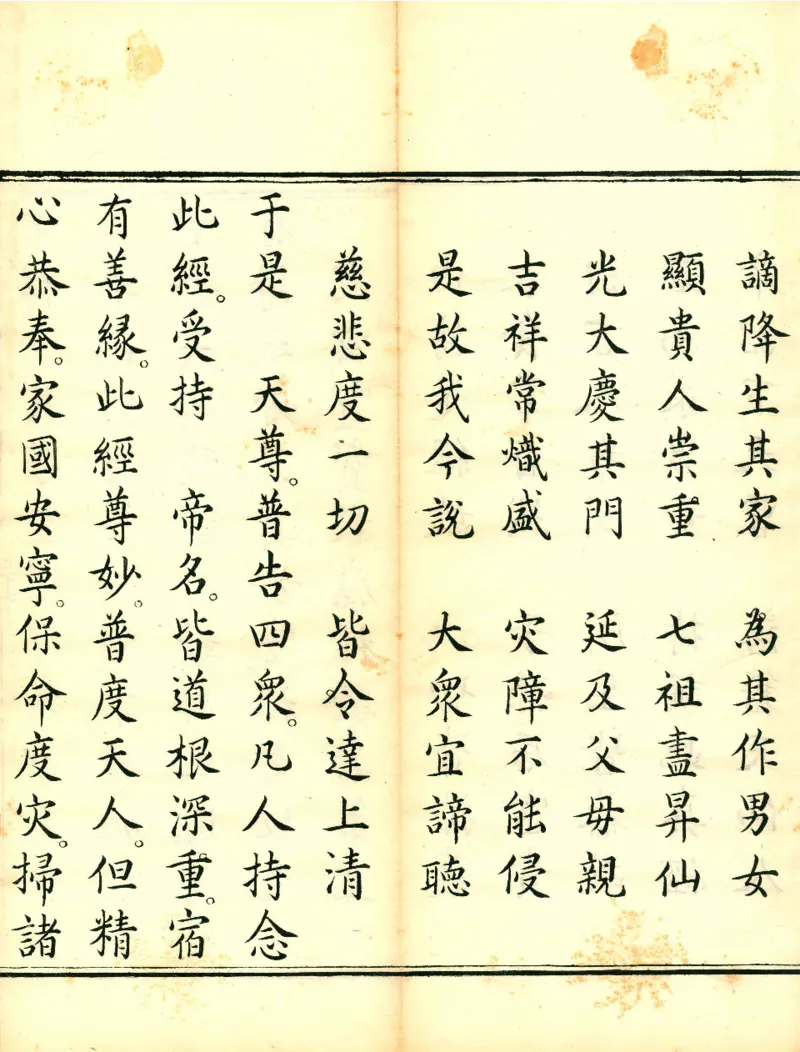 謫降生其家　為其作男女
顯貴人崇重　七祖盡昇仙
光大慶其門　延及父母親
吉祥常熾盛　灾障不能侵
是故我今說　大衆宜諦聽
慈悲度一切　皆令達上清
于是　天尊。普告四衆。凡人持念
此經。受持　帝名。皆道根深重。宿
有善緣。此經尊妙。普度天人。但精
心恭奉。家國安寧。保命度灾。掃諸